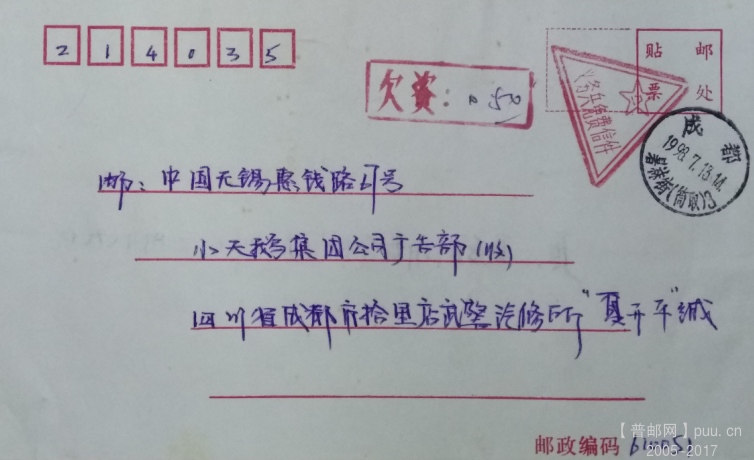 214035
贴 邮
票 处
欠资：0.50
义务兵免费信件
成都
1998.7.13.14
邮：中国无锡惠钱路67号
小天鹅集团公司广告部（收）
四川省成都市拾里店武警汽修所"夏开平"缄
邮政编码 610051
【普邮网】puu.cn
2005-2017